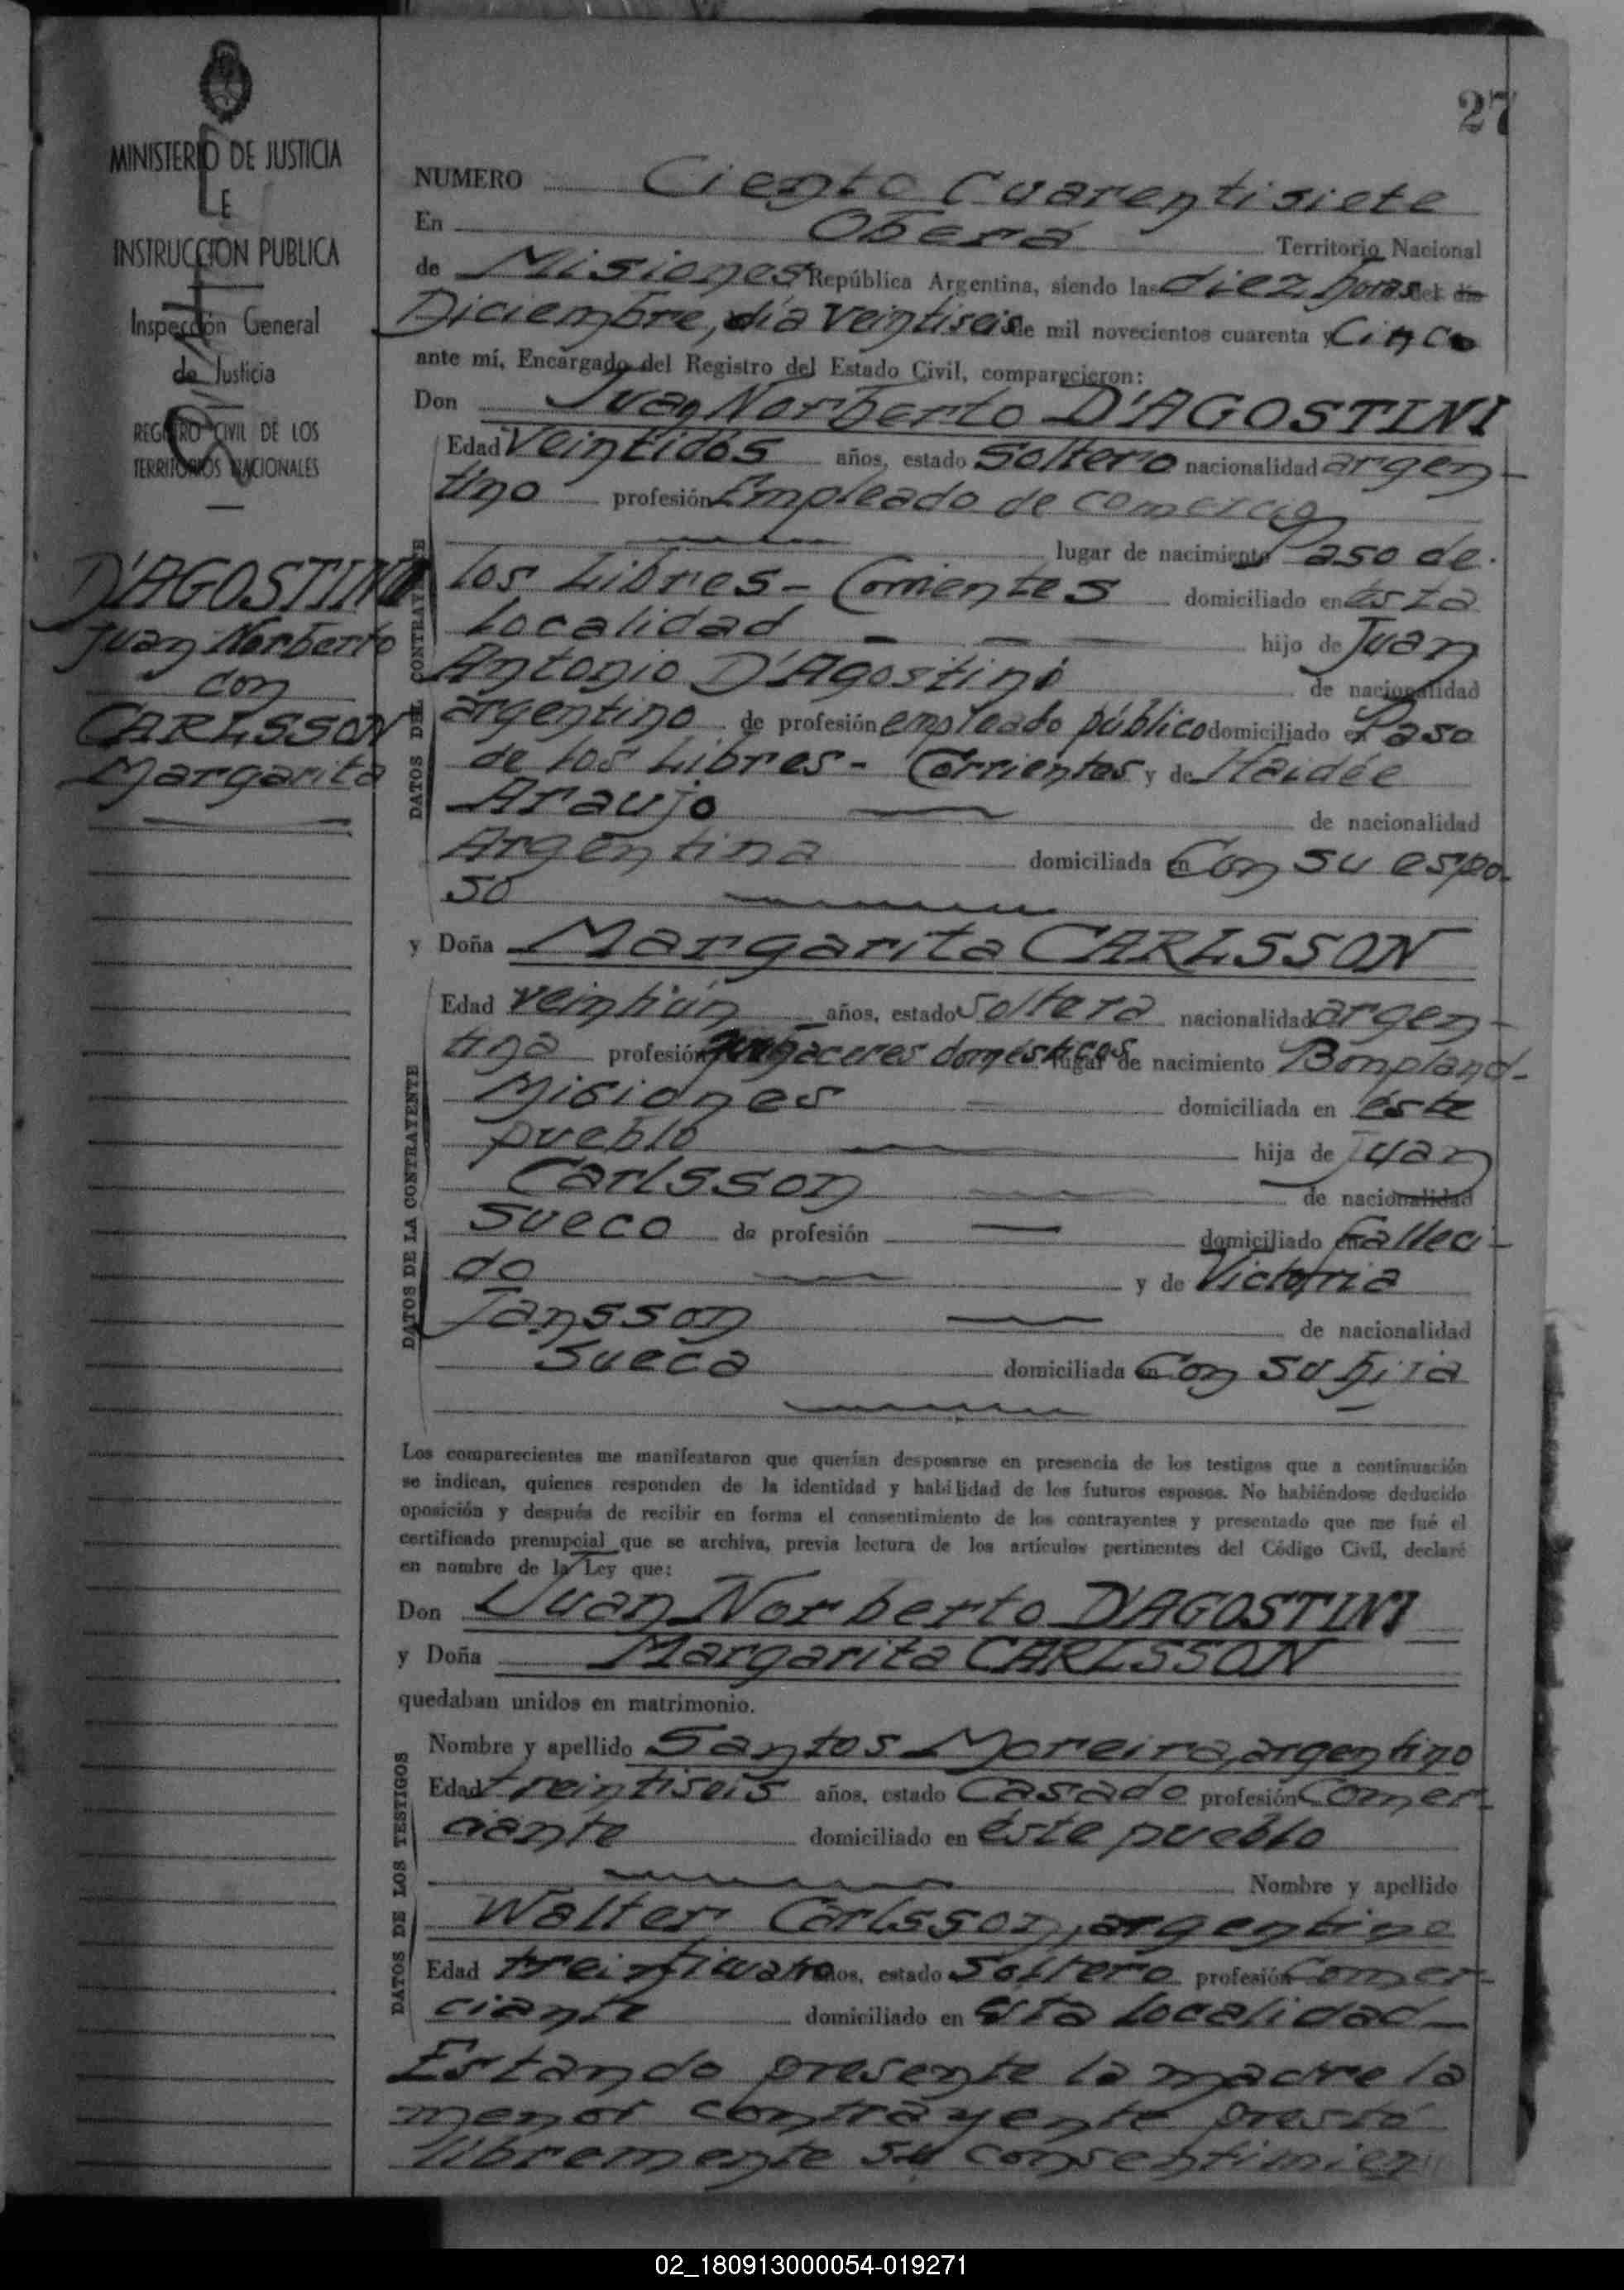 27
MINISTERIO DE JUSTICIA
E
INSTRUCCION PUBLICA
Inspección General
de Justicia
REGISTRO CIVIL DE LOS
TERRITORIOS NACIONALES
D'AGOSTINI
Juan Norberto
con
CARLSSON
Margarita
NUMERO Ciento Cuarentisiete
En Oberá Territorio Nacional
de Misiones República Argentina, siendo las diez horas del día
Diciembre, día veintiseis de mil novecientos cuarenta y Cinco
ante mí, Encargado del Registro del Estado Civil, comparecieron:
Don Juan Norberto D'AGOSTINI
DATOS DEL CONTRAYENTE
Edad Veintidós años, estado Soltero nacionalidad argen-
tino profesión Empleado de comercio
lugar de nacimiento Paso de
los Libres - Corrientes domiciliado en ésta
Localidad - - - hijo de Juan
Antonio D'Agostini de nacionalidad
argentino de profesión empleado público domiciliado en Paso
de los Libres - Corrientes y de Haidée
Araujo de nacionalidad
Argentina domiciliada en Con su espo-
so
y Doña Margarita CARLSSON
DATOS DE LA CONTRAYENTE
Edad veintiún años, estado Soltera nacionalidad argen-
tina profesión quehaceres domésticos lugar de nacimiento Bompland-
Misiones domiciliada en éste
pueblo hija de Juan
Carlsson de nacionalidad
Sueco de profesión — domiciliado en Falleci-
do y de Victoria
Jansson de nacionalidad
Sueca domiciliada en Con su hija
Los comparecientes me manifestaron que querían desposarse en presencia de los testigos que a continuación
se indican, quienes responden de la identidad y habilidad de los futuros esposos. No habiéndose deducido
oposición y después de recibir en forma el consentimiento de los contrayentes y presentado que me fué el
certificado prenupcial que se archiva, previa lectura de los artículos pertinentes del Código Civil, declaré
en nombre de la Ley que:
Don Juan Norberto D'AGOSTINI
y Doña Margarita CARLSSON
quedaban unidos en matrimonio.
DATOS DE LOS TESTIGOS
Nombre y apellido Santos Moreira, argentino
Edad treintiseis años, estado Casado profesión Comer-
ciante domiciliado en éste pueblo
Nombre y apellido
Walter Carlsson, argentino
Edad treinticuatro años, estado Soltero profesión Comer-
ciante domiciliado en ésta Localidad-
Estando presente la madre la
menor contrayente prestó
libremente su consentimien
02_180913000054-019271